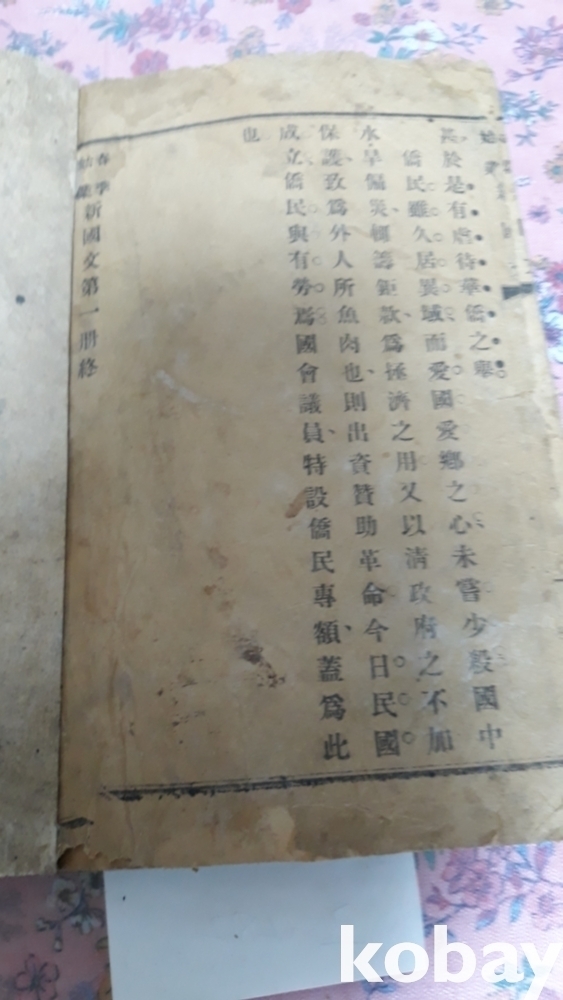 甚於是有虐待華僑之舉
僑民雖久居異域而愛國愛鄉之心未嘗少殺國中
水旱偏災、輒籌鉅款、為拯濟之用又以清政府之不加
保護、致為外人所魚肉也、則出資贊助革命今日民國
成立、僑民與有勞焉國會議員、特設僑民專額、蓋為此
也
春季
新國文第一册終
kobay